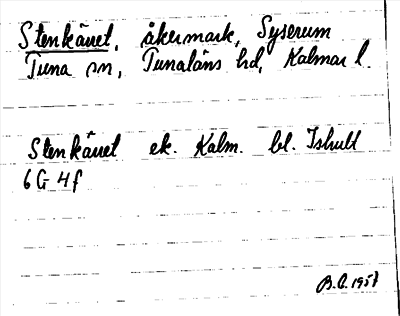 Stenkäuet, åkermark, Syserum
Tuna sn, Tunaläns hd, Kalmar l.
Stenkäuet ek. Kalm. bl. Ishult
6G 4f
B.O. 1958